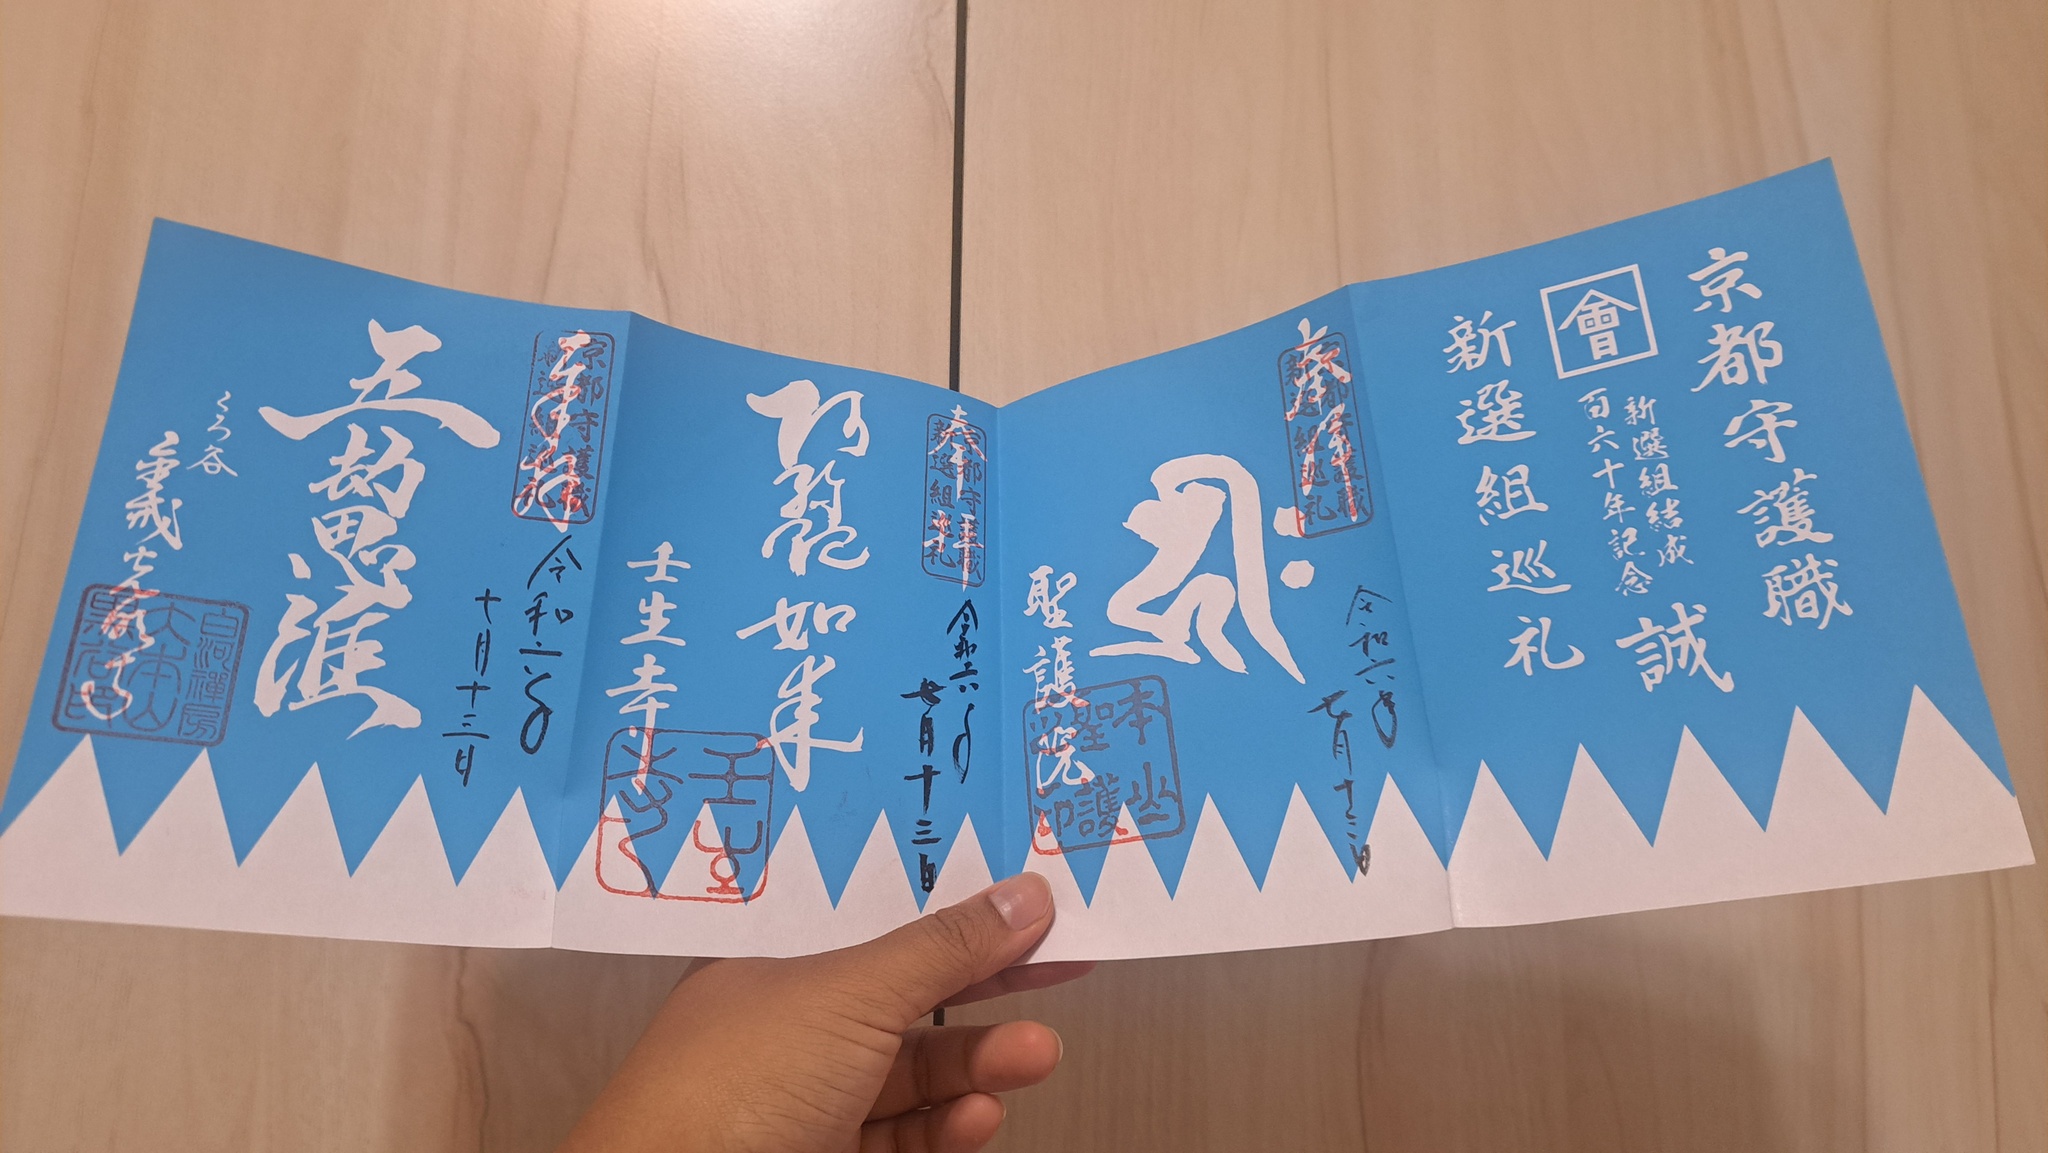 京都守護職
會
新選組結成
百六十年記念
誠
新選組巡礼
奉拝
京都守護職
新選組巡礼
令和六年
七月十三日
聖護院
本山
聖護
奉拝
京都守護職
新選組巡礼
令和六年
七月十三日
如来
壬生寺
壬生
奉拝
京都守護職
新選組巡礼
令和六年
十月十三日
五劫思惟
くろ谷
金戒光明寺
白河禅房
大本山
黒谷印